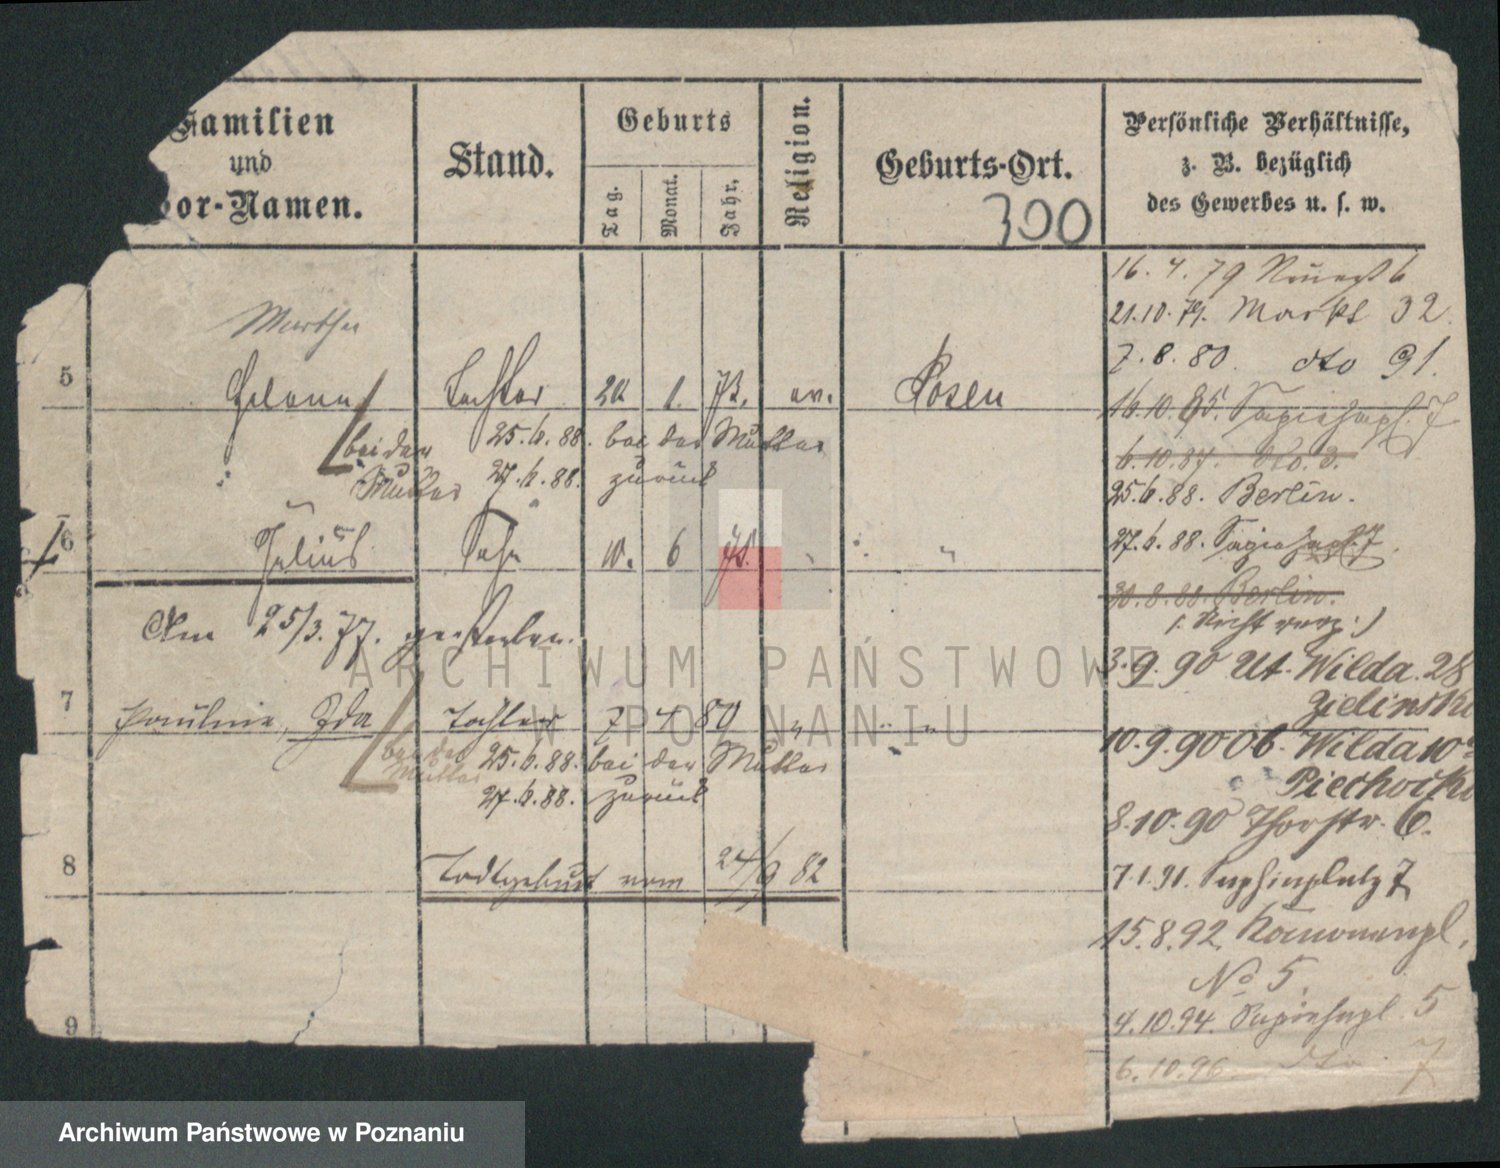 Familien
und
Vor-Namen.
Stand.
Geburts
Tag.
Monat.
Jahr.
Religion.
Geburts-Ort.
Persönliche Verhältnisse,
z. B. bezüglich
des Gewerbes u. s. w.
300
Martha
5
Helene
Tochter
1.
ev.
Posen
bei der
Mutter
25.6.88. bei der Mutter
27.6.88. zurück
6
Julius
Sohn
10.
6
Am 25/3.77. gestorben.
7
Pauline, Ida
Tochter
7 4 80
bei der
Mutter
25.6.88. bei der Mutter
27.6.88. zurück
8
Todtgeburt vom 24/9 82
9
16.4.79
21.10.79. Markt 32.
7.8.80. dto 91.
16.10.85. Sapiehapl. 7
6.10.87. dto. 3.
25.6.88. Berlin.
27.6.88. Sapiehapl. 7.
30.8.88. Berlin.
3.9.90 Ut. Wilda. 28
Zielinski
10.9.90 Ob. Wilda 10a
Piechocki
8.10.90 Thorstr. 6.
7.1.91. Sapiehaplatz 7
15.8.92. Kanonenpl.
No 5.
4.10.94. Sapiehapl. 5
6.10.96. dto 7
ARCHIWUM PAŃSTWOWE
W POZNANIU
Archiwum Państwowe w Poznaniu